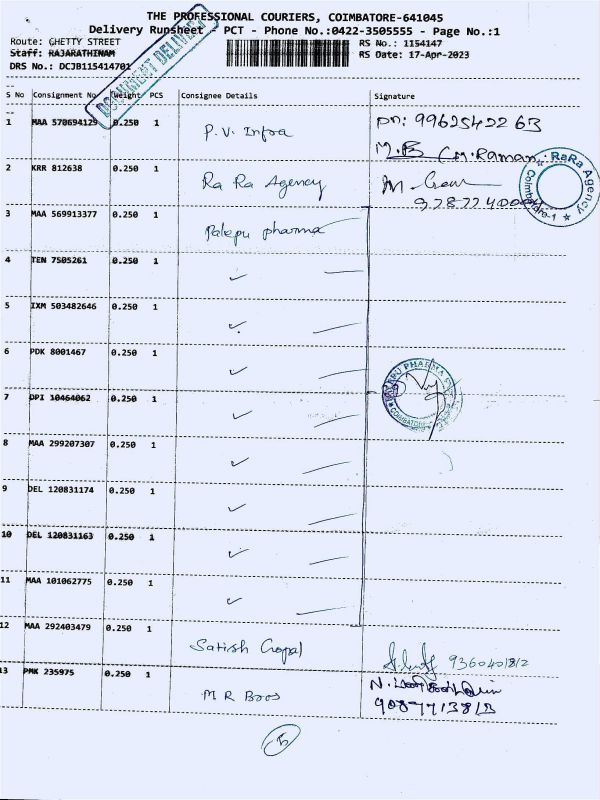 THE PROFESSIONAL COURIERS, COIMBATORE-641045
Delivery Runsheet - PCT - Phone No.:0422-3505555 - Page No.:1
Route: CHETTY STREET RS No.: 1154147
Staff: RAJARATHINAM RS Date: 17-Apr-2023
DRS No.: DCJB115414701
DOCUMENT DELIVERY
S No Consignment No Weight PCS Consignee Details Signature
1 MAA 570694129 0.250 1 P.V. Infra pn: 9962542263
M.B (M.Raman)
2 KRR 812638 0.250 1 Ra Ra Agency
RaRa Agency Coimbatore-1
3 MAA 569913377 0.250 1 Palepu pharma
4 TEN 7505261 0.250 1
5 IXM 503482646 0.250 1
6 PDK 8001467 0.250 1
7 DPI 10464062 0.250 1
PHARMA COIMBATORE
8 MAA 299207307 0.250 1
9 DEL 120831174 0.250 1
10 DEL 120831163 0.250 1
11 MAA 101062775 0.250 1
12 MAA 292403479 0.250 1 Satish Gopal
13 PMK 235975 0.250 1 M R Bros